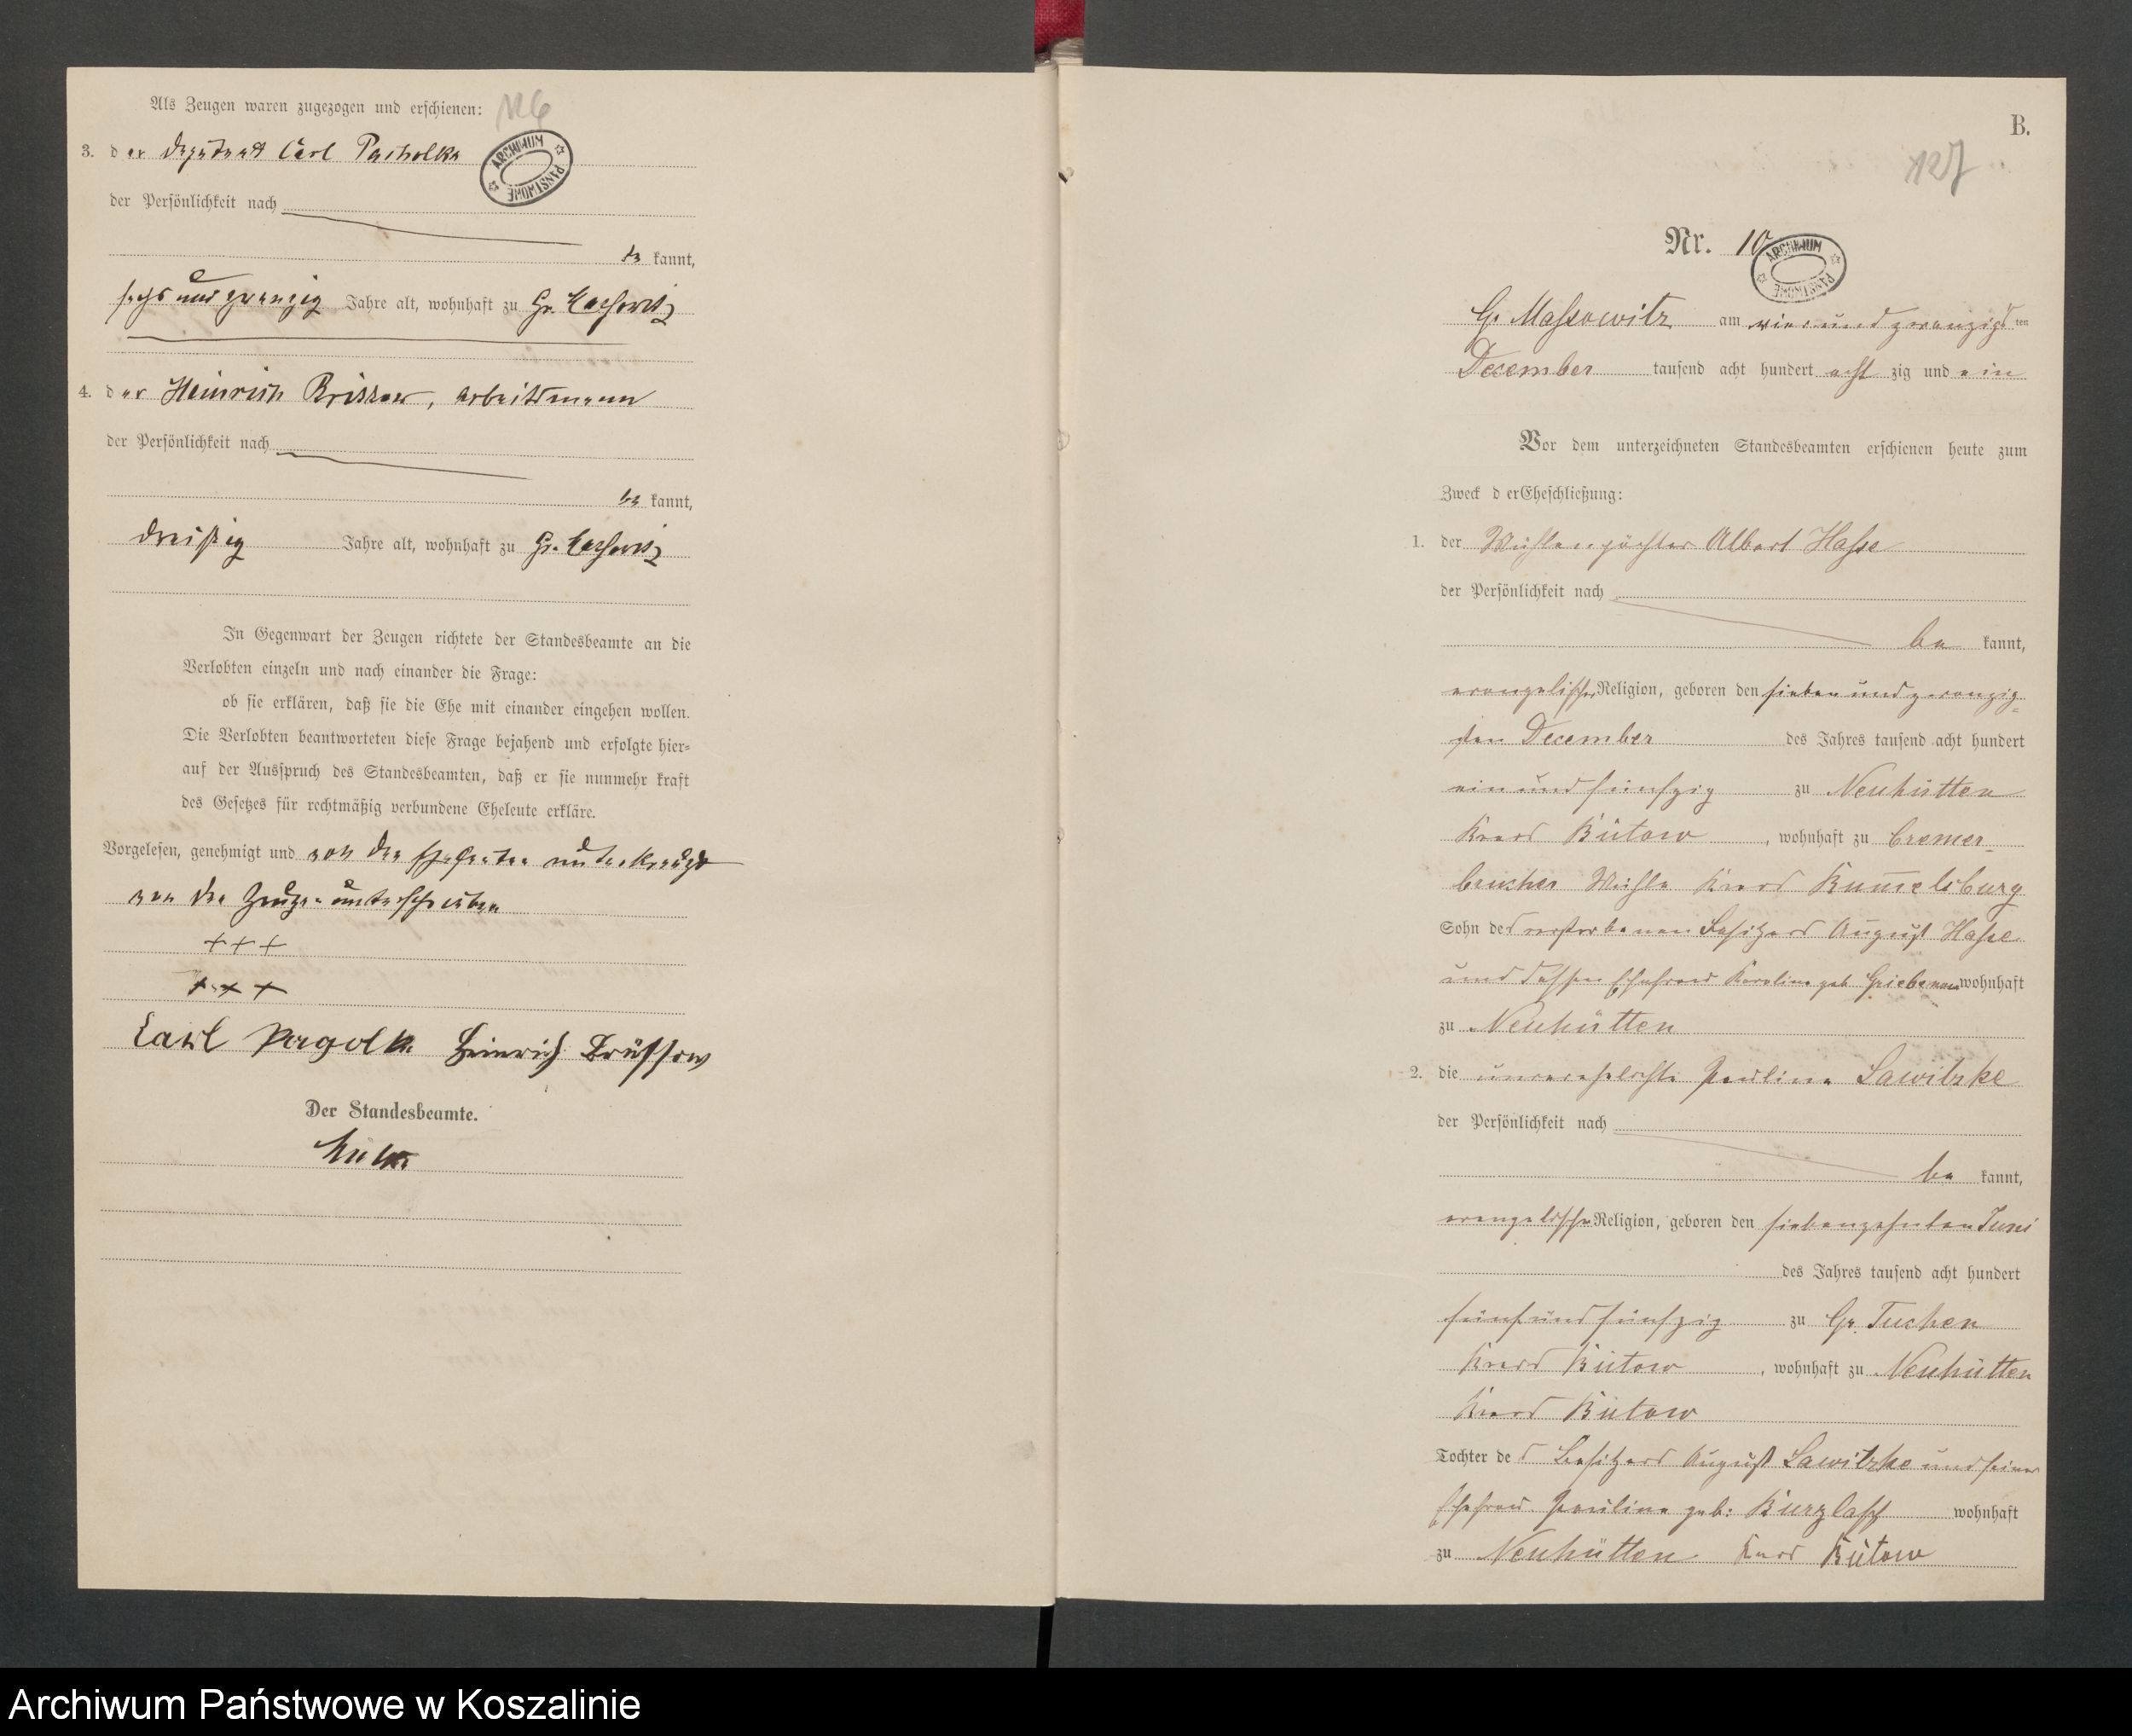 Als Zeugen waren zugezogen und erschienen:
126
ARCHIWUM PAŃSTWOWE
3. der Deputant Carl Pacholka
der Persönlichkeit nach
be kannt,
sechs und zwanzig Jahre alt, wohnhaft zu Gr. Massowitz
4. der Heinrich Brissow, Arbeitsmann
der Persönlichkeit nach
be kannt,
dreißig Jahre alt, wohnhaft zu Gr. Massowitz
In Gegenwart der Zeugen richtete der Standesbeamte an die
Verlobten einzeln und nach einander die Frage:
ob sie erklären, daß sie die Ehe mit einander eingehen wollen.
Die Verlobten beantworteten diese Frage bejahend und erfolgte hier-
auf der Ausspruch des Standesbeamten, daß er sie nunmehr kraft
des Gesetzes für rechtmäßig verbundene Eheleute erkläre.
Vorgelesen, genehmigt und von den Eheleuten unterkreuzt
von den Zeugen unterschrieben
+++
+++
Carl Heinrich Brüssow
Der Standesbeamte.
B.
127
Nr. 10
ARCHIWUM PAŃSTWOWE
Gr. Massowitz am vier und zwanzigsten
December tausend acht hundert acht zig und ein
Vor dem unterzeichneten Standesbeamten erschienen heute zum
Zweck der Eheschließung:
1. der Mühlenpächter Albert Hasse
der Persönlichkeit nach
be kannt,
evangelischer Religion, geboren den sieben und zwanzig-
sten December des Jahres tausend acht hundert
ein und fünfzig zu Neuhütten
Kreis Bütow, wohnhaft zu Cremer-
brucher Mühle Kreis Rummelsburg
Sohn des verstorbenen Besitzers August Hasse
und dessen Ehefrau Karoline geb Griebenow wohnhaft
zu Neuhütten
2. die unverehelichte Pauline Lawitzke
der Persönlichkeit nach
be kannt,
evangelischer Religion, geboren den siebenzehnten Juni
des Jahres tausend acht hundert
fünf und fünfzig zu Gr. Tuchen
Kreis Bütow, wohnhaft zu Neuhütten
Kreis Bütow
Tochter des Besitzers August Lawitzke und seiner
Ehefrau Pauline geb: Kurzlaff wohnhaft
zu Neuhütten Kreis Bütow
Archiwum Państwowe w Koszalinie